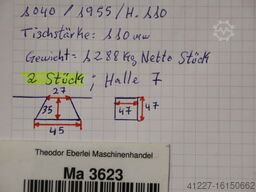 1040 / 1955 / H. 110
Tischstärke: 110 mm
Gewicht = 1288 kg Netto Stück
2 Stück ; Halle 7
27
35
45
47
47
Theodor Eberlei Maschinenhandel
Ma 3623
41227-16150662